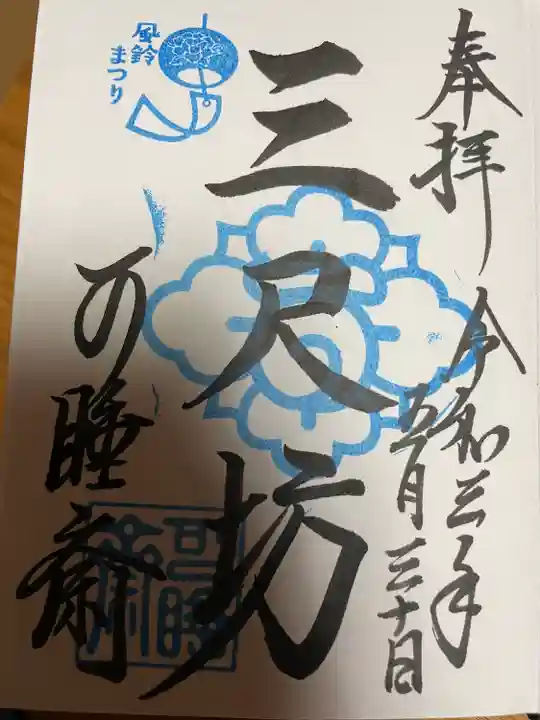 奉拝
令和三年
五月三十日
三尺坊
風鈴
まつり
可睡斎